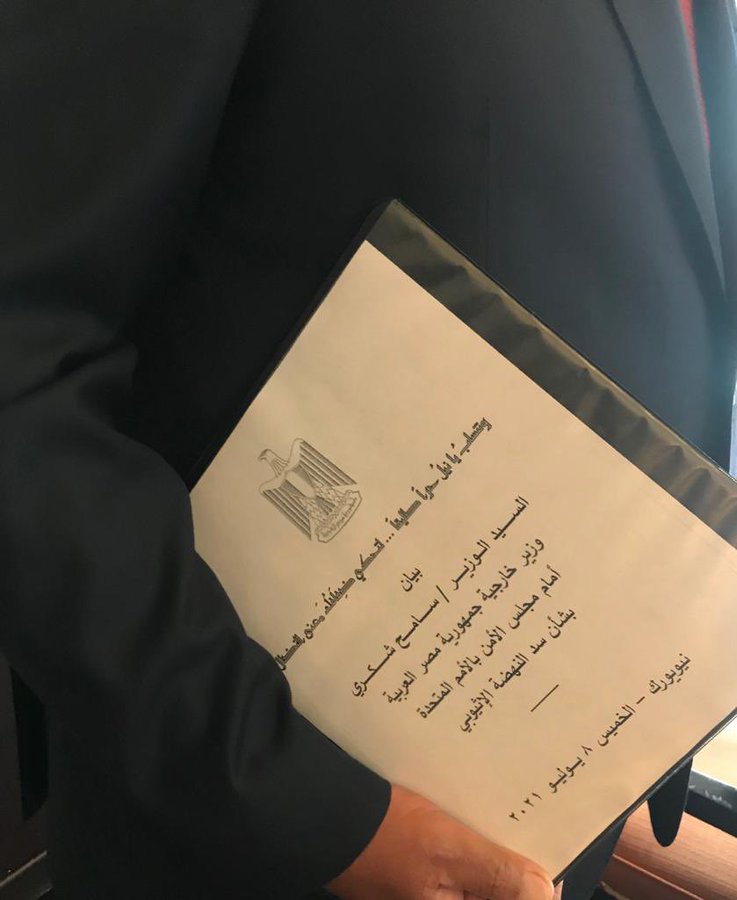 وتعيش يا نيل حراً طليقاً ... لتحكي ضفافك معنى النضال
بيان
السيد الوزير / سامح شكري
وزير خارجية جمهورية مصر العربية
أمام مجلس الأمن بالأمم المتحدة
بشأن سد النهضة الإثيوبي
نيويورك - الخميس ٨ يوليو ٢٠٢١